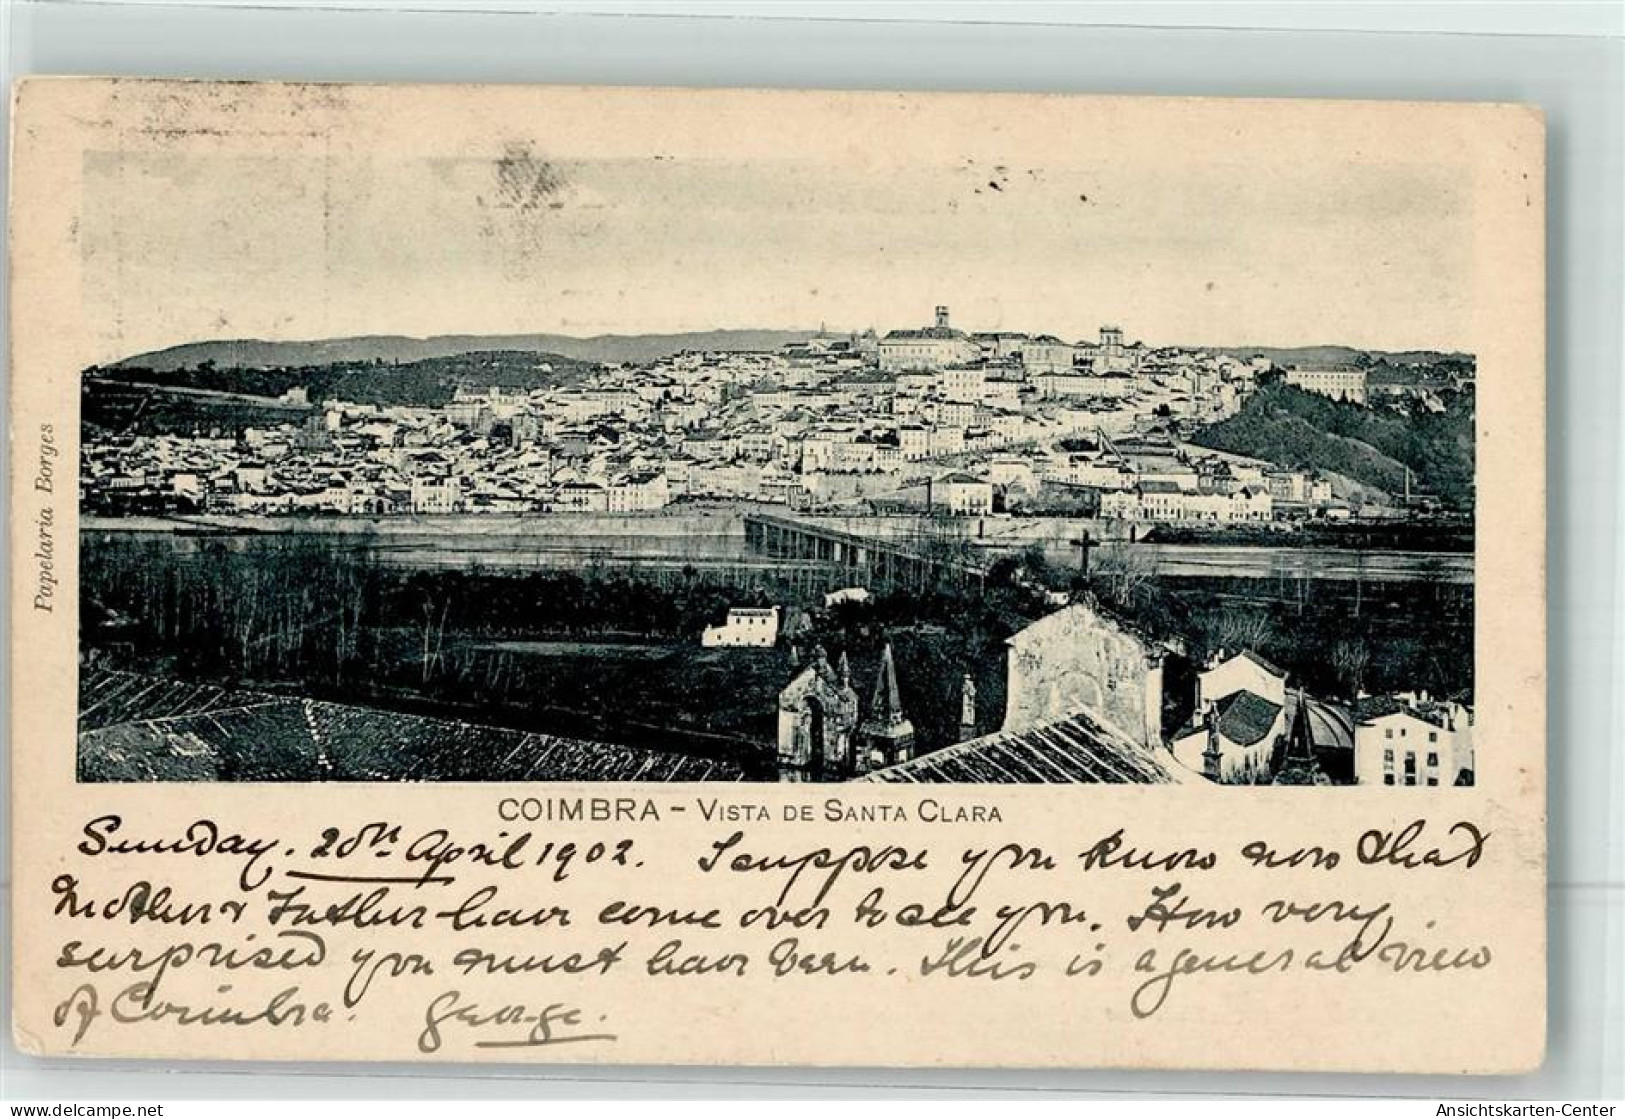 Papelaria Borges
COIMBRA - VISTA DE SANTA CLARA
Sunday. 20th April 1902. I suppose you know now that
Mother & Father have come over to see you. How very
surprised you must have been. This is a general view
of Coimbra. George.
www.delcampe.net
Ansichtskarten-Center